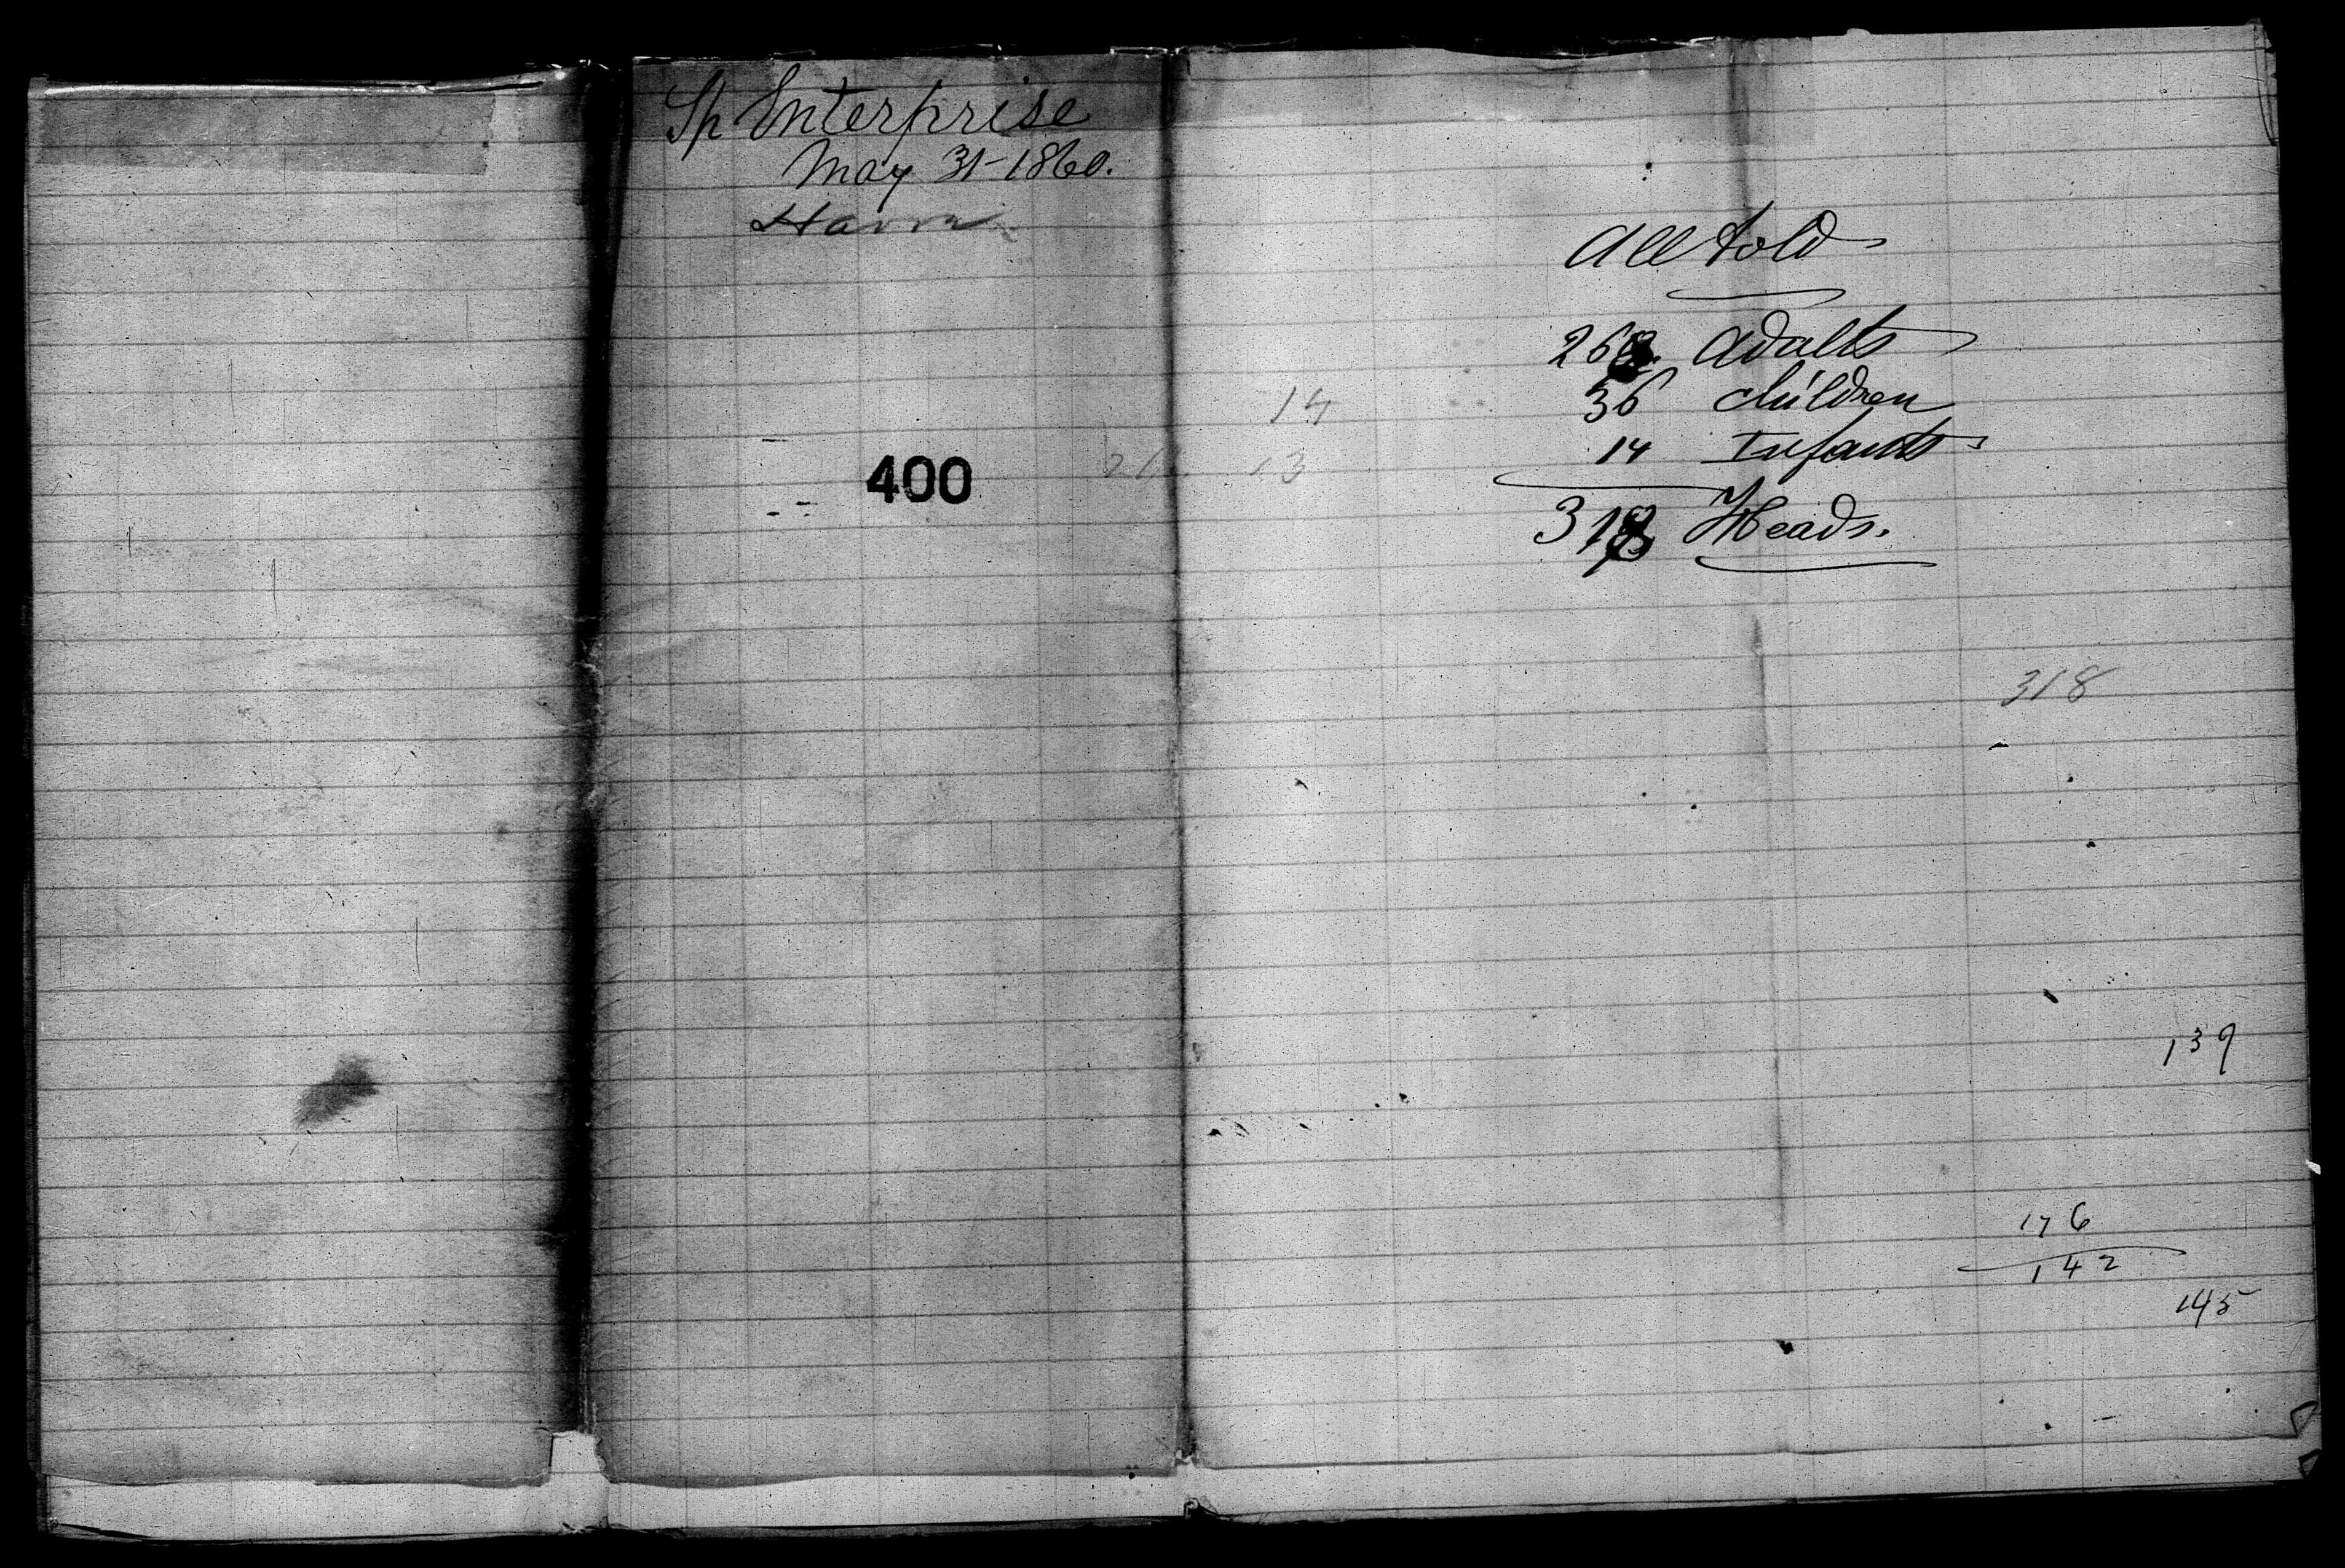 Sp Enterprise
May 31-1860.
400
14
13
all told
268. adults
36 children
14 Infants
318 Heads.
318
139
176
142
145